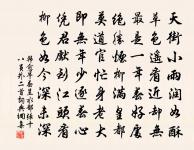 天街小雨潤如酥
草色遙看近却無
最是一年春好處
絕勝煙柳滿皇都
莫道官忙身老大
即無年少逐春心
憑君先到江頭看
柳色如今深未深
韓愈早春呈水部張十
八員外二首詞典網書